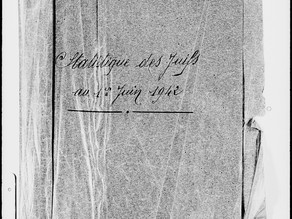 Statistique des Juifs
au 1er Juin 1942